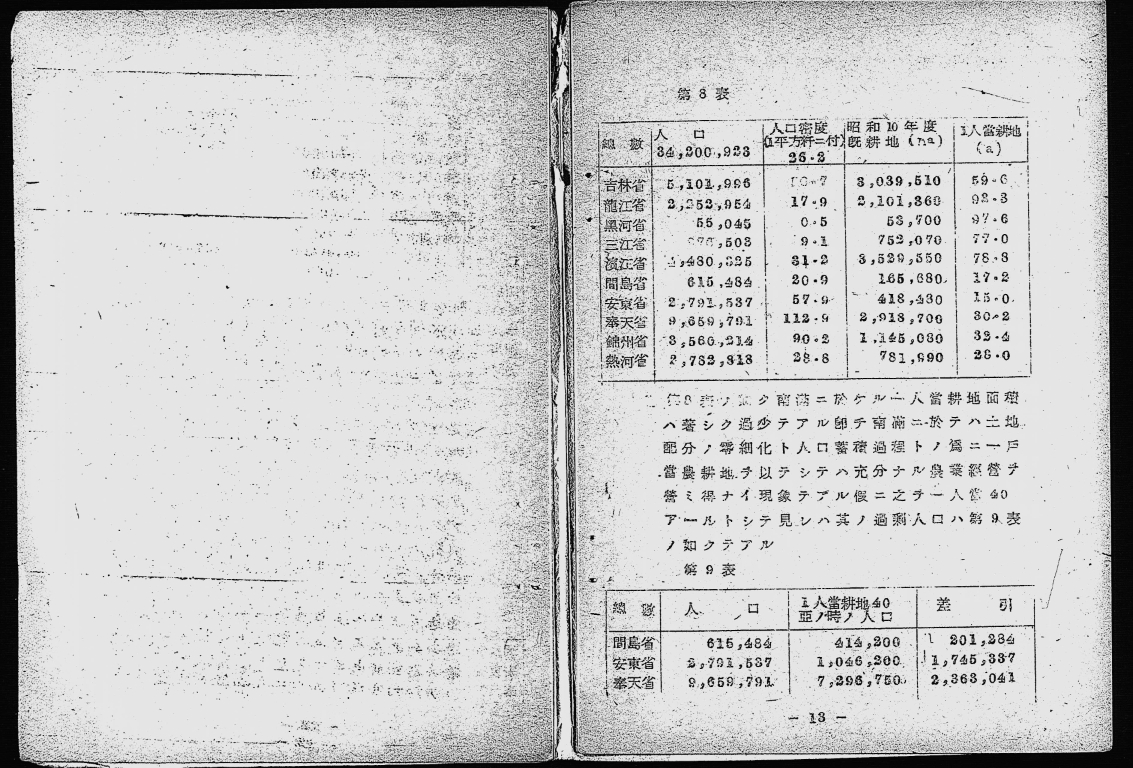 第8表
總數 人口 34,200,923 人口密度(1平方粁ニ付) 26.2 昭和10年度既耕地(ha) 1人當耕地(a)
吉林省 5,101,996 3,039,510 59.6
龍江省 2,252,954 17.9 2,101,360 92.3
黑河省 55,045 0.5 53,700 97.6
三江省 9.1 752,070 77.0
濱江省 4,480,325 31.2 3,529,550 78.8
間島省 615,484 20.9 165,680 17.2
安東省 2,791,537 57.9 418,480 15.0
奉天省 9,659,791 112.9 2,918,700 30.2
錦州省 3,560,214 90.2 1,145,080 32.4
熱河省 2,782,818 28.8 781,990 28.0
第8表ノ如ク南滿ニ於ケル一人當耕地面積
ハ著シク過少デアル卽チ南滿ニ於テハ土地
配分ノ零細化ト人口蓄積過程トノ爲ニ一戶
當農耕地ヲ以テシテハ充分ナル農業經營ヲ
營ミ得ナイ現象デアル假ニ之ヲ一人當40
アールトシテ見レハ其ノ過剩人口ハ第9表
ノ如クデアル
第9表
總數 人口 1人當耕地40亞ノ時ノ人口 差引
間島省 615,484 414,200 201,284
安東省 2,791,537 1,046,200 1,745,337
奉天省 9,659,791 7,296,750 2,363,041
— 13 —